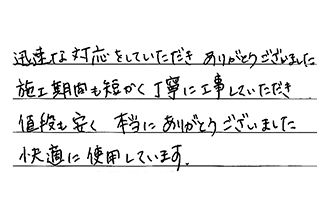 迅速な対応をしていただき ありがとうございました
施工期間も短かく丁寧に工事していただき
値段も安く 本当にありがとうございました
快適に使用しています.